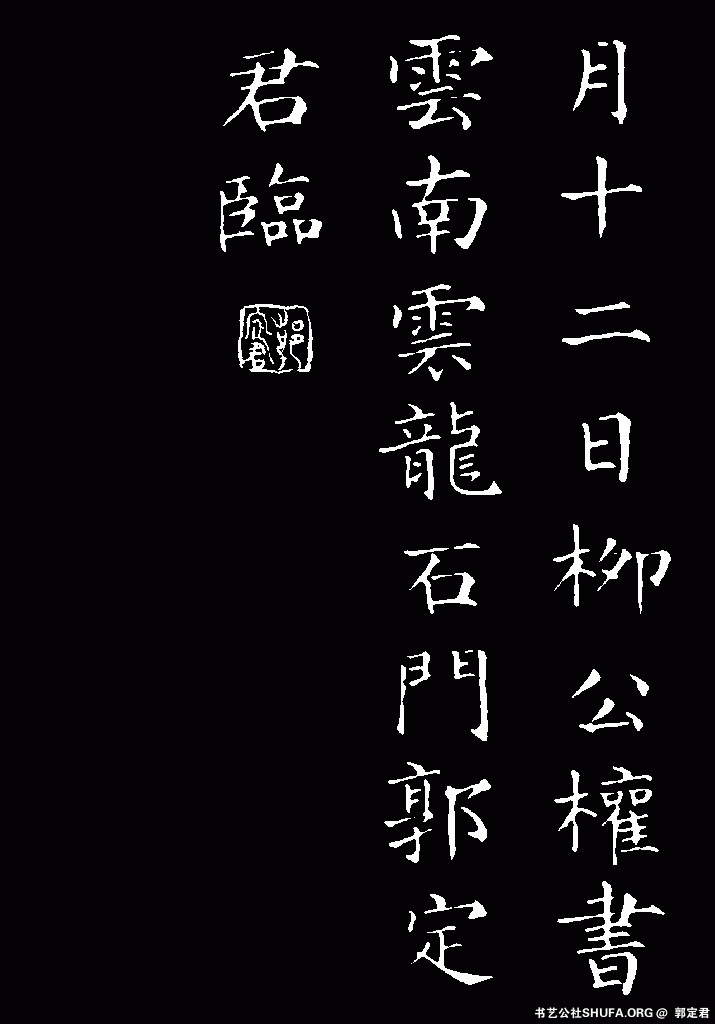 月十二日柳公權書
雲南雲龍石門郭定
君臨
郭定君
书艺公社SHUFA.ORG @ 郭定君